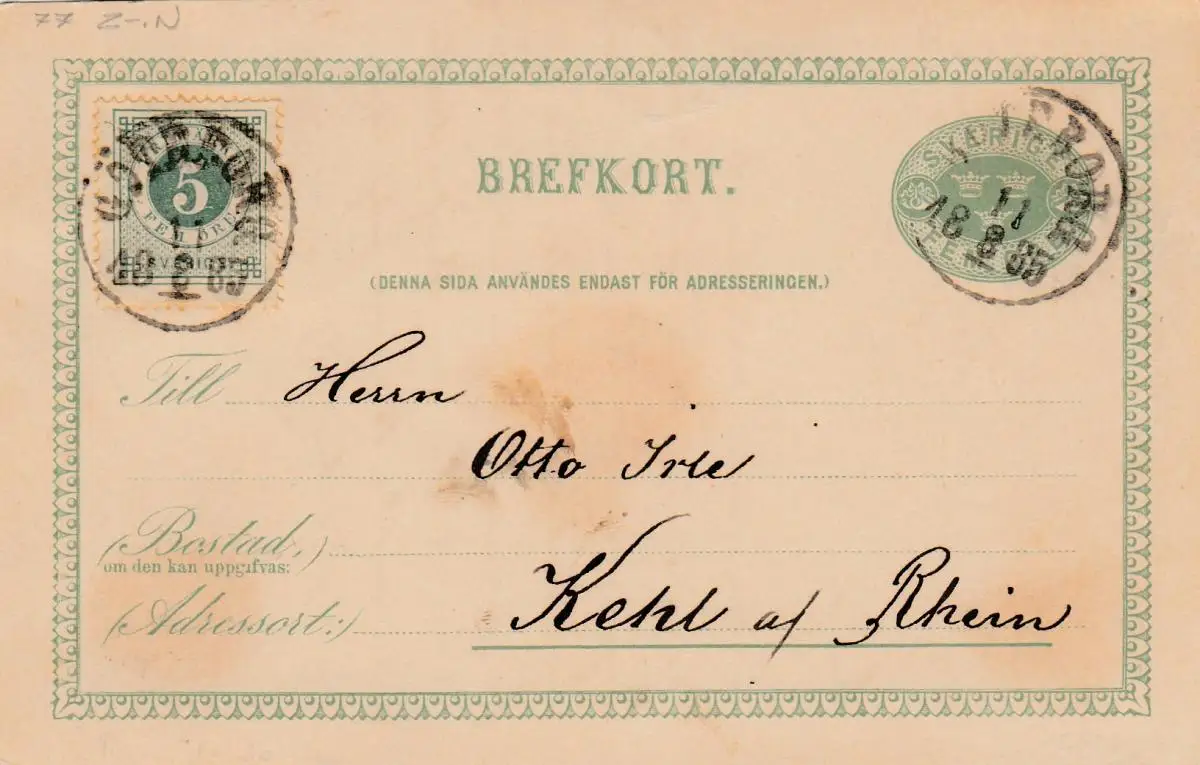 77 Z-.N
GÖTEBORG
11
18 8 85
5
FEM ÖRE
SVERIGE
BREFKORT.
SVERIGE
GÖTEBORG
11
18 8 85
(DENNA SIDA ANVÄNDES ENDAST FÖR ADRESSERINGEN.)
Till Herrn
Otto Irle
(Bostad,)
om den kan uppgifvas:
(Adressort:) Kehl a/ Rhein